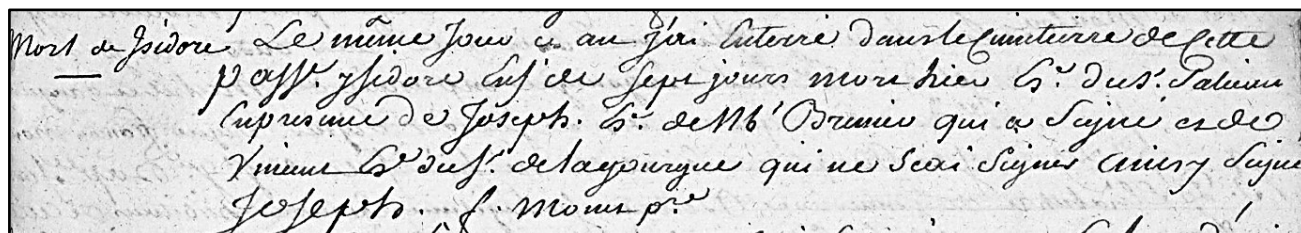 Mort de Isidore Le même Jour et an j'ai Enterré dans le Cimetierre de Cette
parss.e ysidore Enf. de sept jours mort hier E.e du S.r
En presence de Joseph. E.e de M.r Brunier qui a Signé et de
Vincent E.e du S.r de lagourgue qui ne Scai Signer ainsy Signé
Joseph. f. p.re